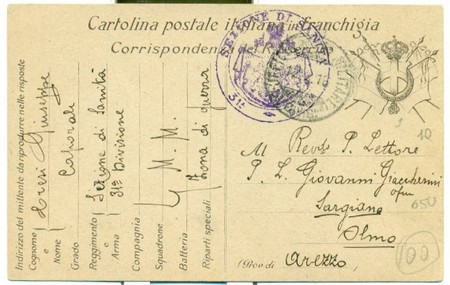 Cartolina postale italiana in franchigia
Corrispondenza del R. Esercito
SEZIONE DI SANITÀ
31ª
Indirizzo del mittente da riprodurre nelle risposte
Cognome e Nome Giuseppe
Grado Caporale
Reggimento e Arma Sezione di Sanità
31ª Divisione
Compagnia
Squadrone M. M.
Batteria
Riparti speciali Zona di guerra
Al Revdo P. Lettore
P. L. Giovanni Giaccherini
ofm
Sargiano
Olmo
(Prov. di Arezzo)
10
050
100